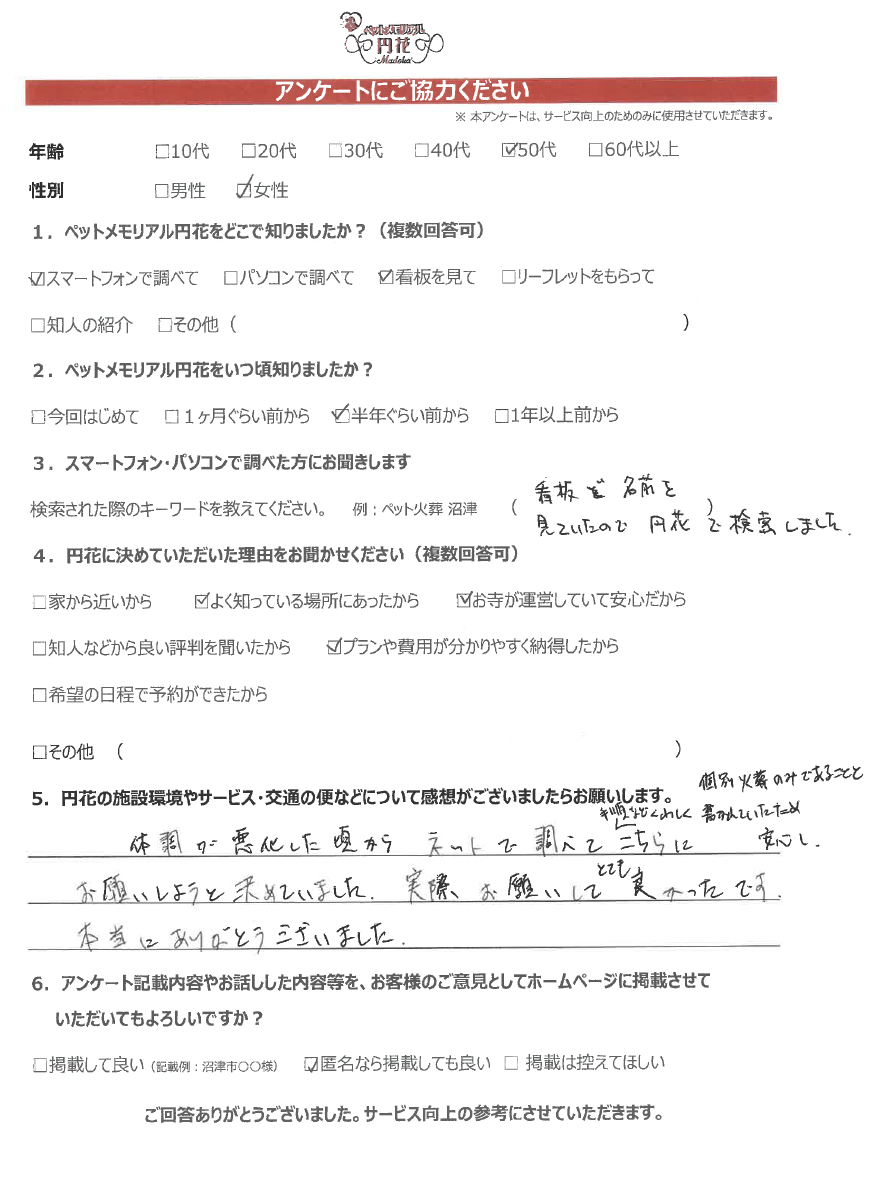 ペットメモリアル
円花
Madoka
アンケートにご協力ください
※ 本アンケートは、サービス向上のためのみに使用させていただきます。
年齢 □10代 □20代 □30代 □40代 ☑50代 □60代以上
性別 □男性 ☑女性
1．ペットメモリアル円花をどこで知りましたか？（複数回答可）
☑スマートフォンで調べて □パソコンで調べて ☑看板を見て □リーフレットをもらって
□知人の紹介 □その他（ ）
2．ペットメモリアル円花をいつ頃知りましたか？
□今回はじめて □１ヶ月ぐらい前から ☑半年ぐらい前から □1年以上前から
3．スマートフォン・パソコンで調べた方にお聞きします
検索された際のキーワードを教えてください。 例：ペット火葬 沼津 （ ）
看板で名前を
見ていたので 円花 で検索しました.
4．円花に決めていただいた理由をお聞かせください（複数回答可）
□家から近いから ☑よく知っている場所にあったから ☑お寺が運営していて安心だから
□知人などから良い評判を聞いたから ☑プランや費用が分かりやすく納得したから
□希望の日程で予約ができたから
□その他 （ ）
5．円花の施設環境やサービス・交通の便などについて感想がございましたらお願いします。
個別火葬のみであることと
手順などくわしく書かれていたため
体調が悪化した頃から ネットで調べて こちらに 安心し.
お願いしようと決めていました. 実際、お願いして とても 良かったです.
本当にありがとうございました.
6．アンケート記載内容やお話しした内容等を、お客様のご意見としてホームページに掲載させて
いただいてもよろしいですか？
□掲載して良い（記載例：沼津市〇〇様） ☑匿名なら掲載しても良い □ 掲載は控えてほしい
ご回答ありがとうございました。サービス向上の参考にさせていただきます。